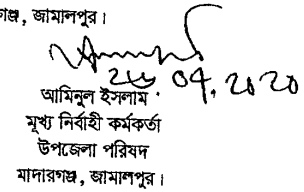 গঞ্জ, জামালপুর।
আমিনুল ইসলাম
মুখ্য নির্বাহী কর্মকর্তা
উপজেলা পরিষদ
মাদারগঞ্জ, জামালপুর।